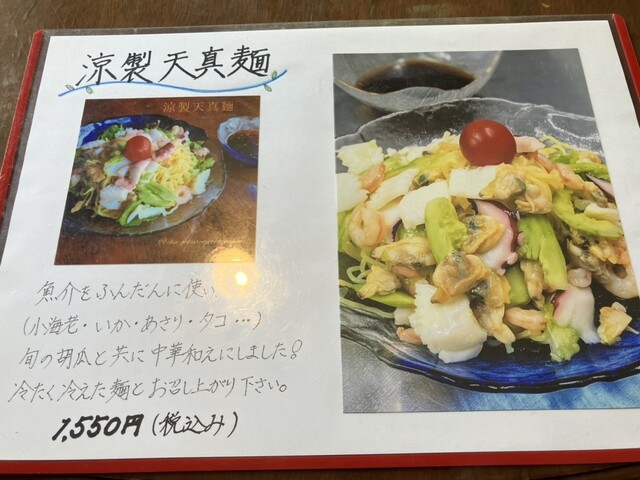 涼製天真麺
涼製天真麺
魚介をふんだんに使い
(小海老・いか・あさり・タコ…)
旬の胡瓜と共に中華和えにしました!
冷たく冷えた麺とお召し上がり下さい。
1,550円(税込み)